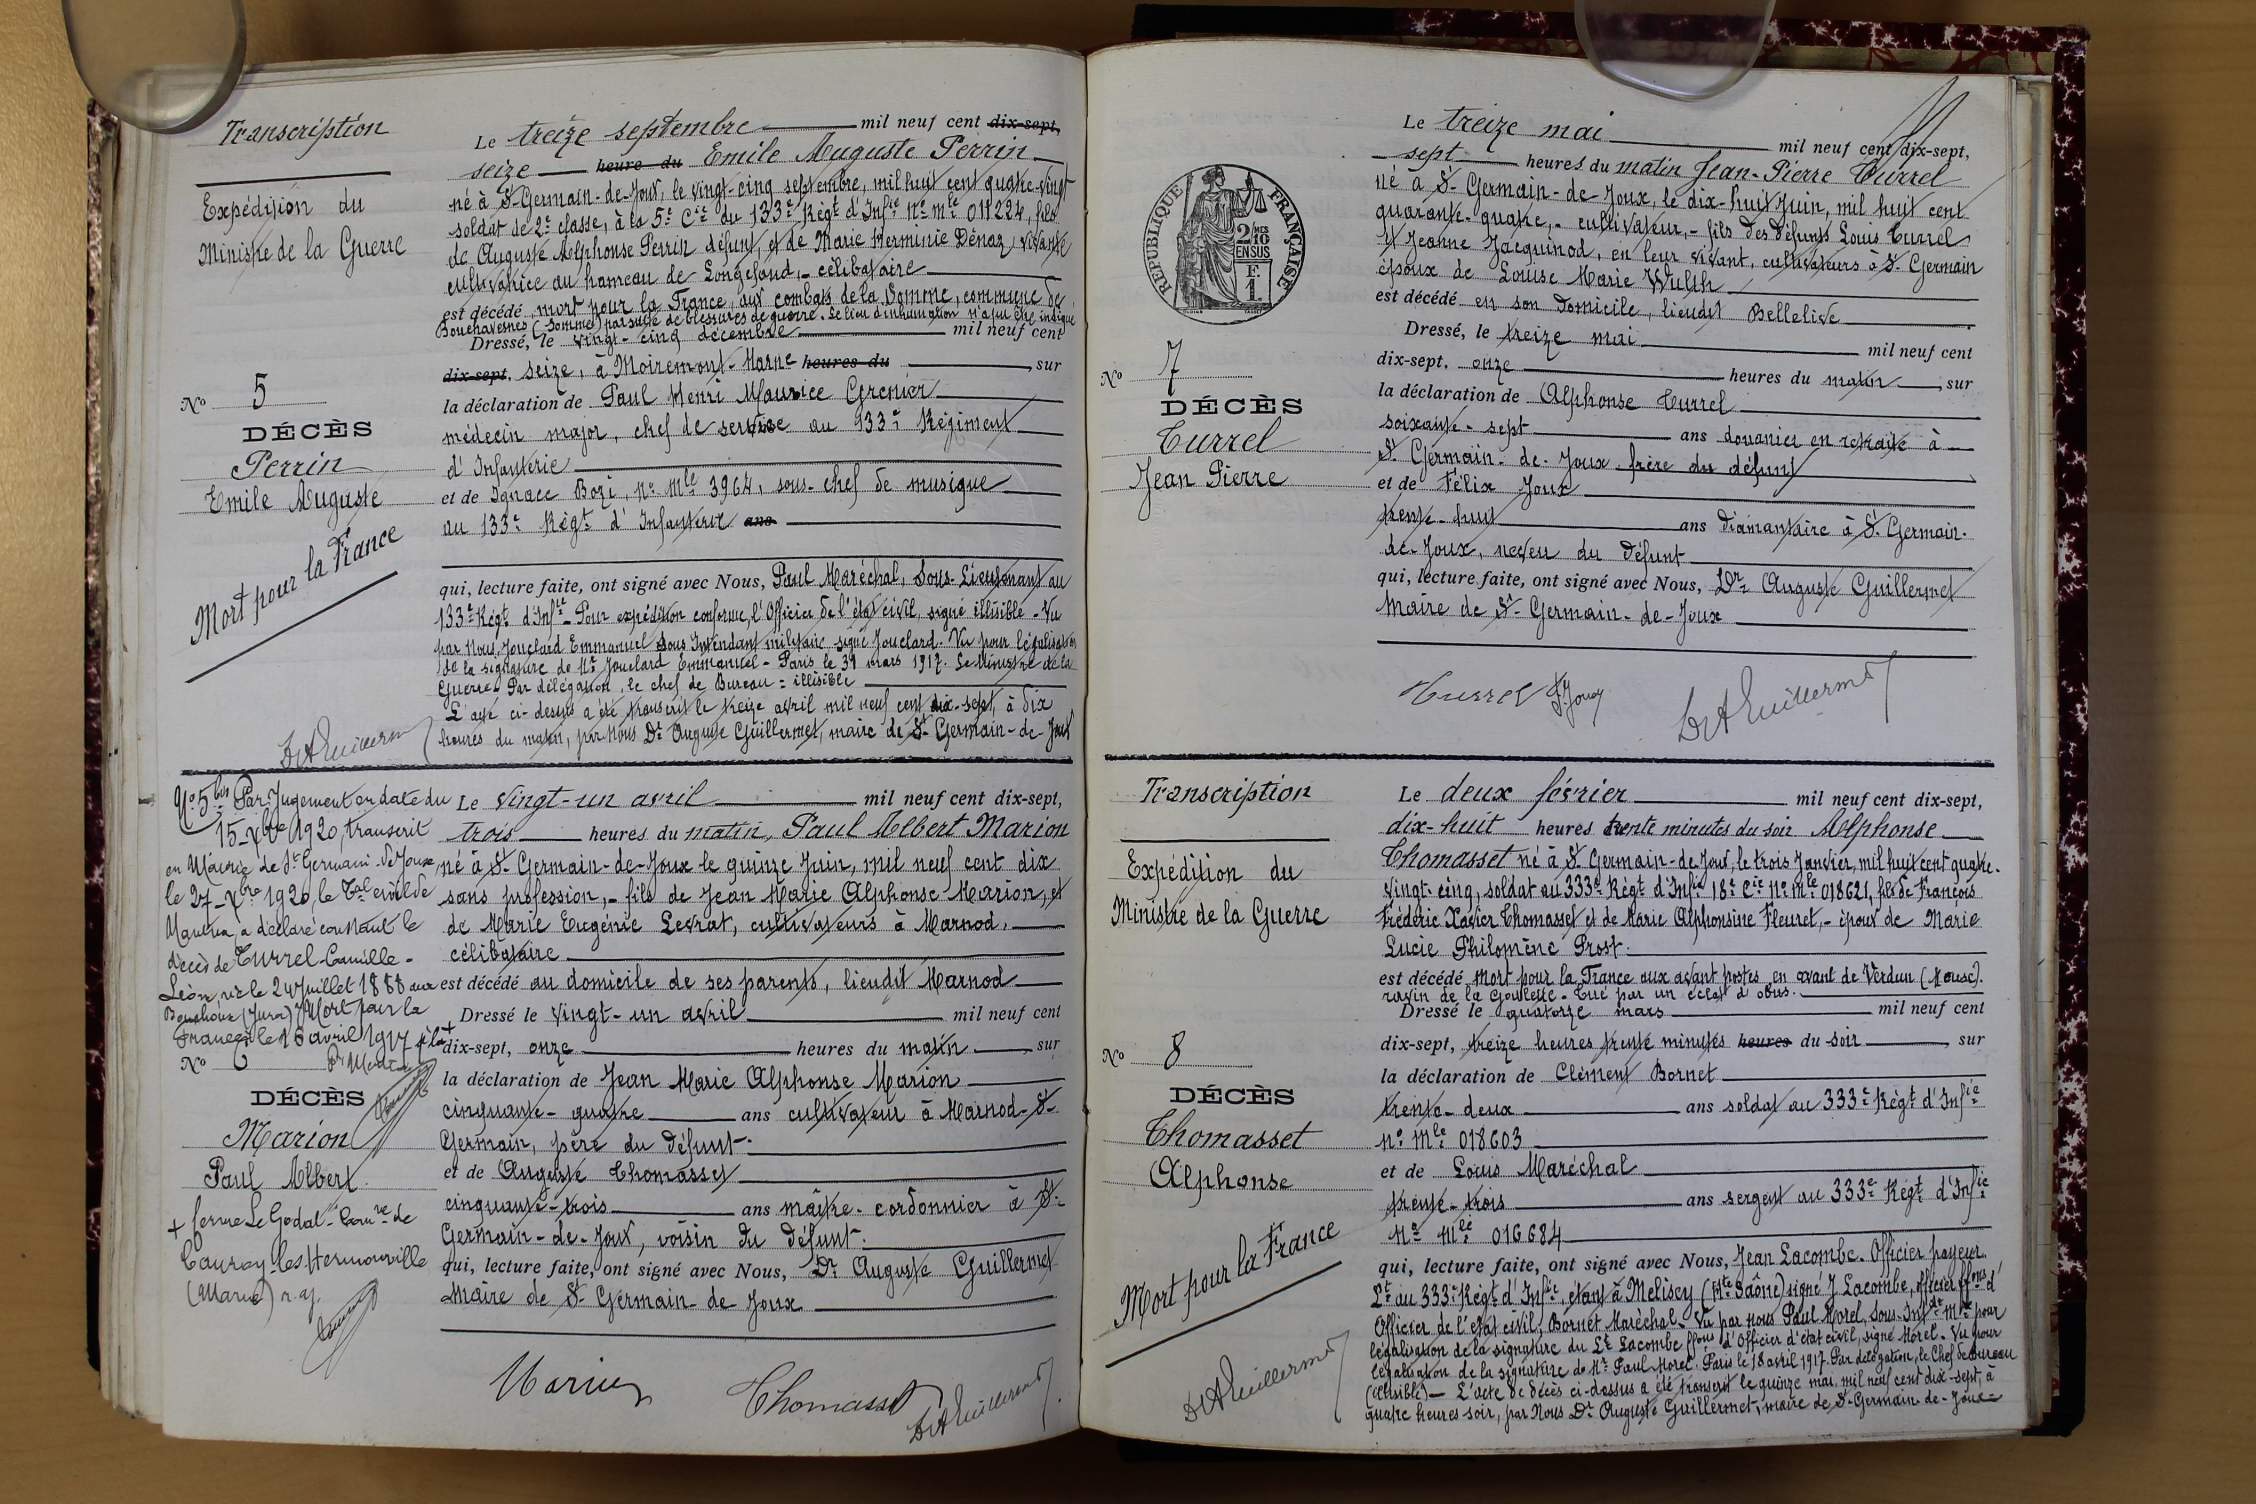 Transcription
Expédition du
Ministre de la Guerre
No 5
DÉCÈS
Perrin
Emile Auguste
Mort pour la France
Le treize septembre mil neuf cent dix-sept,
seize heure du Emile Auguste Perrin
né à St Germain-de-Joux, le vingt-cinq septembre, mil huit cent quatre-vingt
soldat de 2e classe, à la 5e Cie du 133e Régt d'Infie No mle 011224, fils
de Auguste Alphonse Perrin défunt, et de Marie Herminie Dénaz, vivante
cultivatrice au hameau de Longefand, - célibataire
est décédé, mort pour la France, aux combats de la Somme, commune de
Bouchavesnes (Somme) par suite de blessures de guerre. Le lieu d'inhumation n'a pu être indiqué
Dressé, le vingt-cinq décembre mil neuf cent
dix-sept, seize, à Moiremont-Marne heures du sur
la déclaration de Paul Henri Maurice Grenier
médecin major, chef de service au 133e Régiment
d'Infanterie
et de Ignace Bozi, No Mle 3964, sous-chef de musique
au 133e Régt d'Infanterie ans
qui, lecture faite, ont signé avec Nous, Paul Maréchal, Sous-Lieutenant au
133e Régt d'Infie - Pour expédition conforme, l'Officier de l'état civil, signé illisible - Vu
par Nous, Jouclard Emmanuel Sous Intendant militaire - signé Jouclard. Vu pour légalisation
de la signature de Mr Jouclard Emmanuel - Paris le 31 mars 1917. Le Ministre de la
Guerre. Par délégation, le chef de Bureau = illisible
L'acte ci-dessus a été transcrit le treize avril mil neuf cent dix-sept, à dix
heures du matin, par Nous Dr Auguste Guillermet, maire de St Germain-de-Joux
Dr A Guillermet
No 5 bis Par Jugement en date du
15-Xbre 1920, transcrit
en Mairie de St Germain-de-Joux
le 27-Xbre 1920, le Tal civil de
Nantua, a déclaré constant le
décès de Turrel-Camille-
Léon, né le 24 Juillet 1888 aux
Bouchoux (Jura) Mort pour la
France, le 16 avril 1917 à la +
No 6
DÉCÈS
Marion
Paul Albert
+ ferme Le Godat - Comne de
Cauroy-les-Hermonville
(Marne) r.a.j.
Le vingt-un avril mil neuf cent dix-sept,
trois heures du matin, Paul Albert Marion
né à St Germain-de-Joux le quinze Juin, mil neuf cent dix
sans profession, - fils de Jean Marie Alphonse Marion, et
de Marie Eugénie Levrat, cultivateurs à Marnod,
célibataire
est décédé au domicile de ses parents, lieudit Marnod
Dressé le vingt-un avril mil neuf cent
dix-sept, onze heures du matin sur
la déclaration de Jean Marie Alphonse Marion
cinquante-quatre ans cultivateur à Marnod-St-
Germain, père du défunt.
et de Auguste Thomasset
cinquante-trois ans maître-cordonnier à St-
Germain-de-Joux, voisin du défunt.
qui, lecture faite, ont signé avec Nous, Dr Auguste Guillermet
Maire de St Germain-de Joux
Marion Thomasset Dr A Guillermet
RÉPUBLIQUE FRANÇAISE
2 MES
10
EN SUS
F
1.
No 7
DÉCÈS
Turrel
Jean Pierre
Le treize mai mil neuf cent dix-sept,
sept heures du matin Jean-Pierre Turrel
né à St-Germain-de-Joux, le dix-huit Juin, mil huit cent
quarante-quatre, - cultivateur, - fils des défunts Louis Turrel
et Jeanne Jacquinod, en leur vivant, cultivateurs à St Germain
époux de Louise Marie Wulth
est décédé en son domicile, lieudit Bellelive
Dressé, le treize mai mil neuf cent
dix-sept, onze heures du matin, sur
la déclaration de Alphonse Turrel
soixante-sept ans douanier en retraite à
St Germain-de-Joux frère du défunt
et de Félix Joux
trente-huit ans diamantaire à St Germain-
de-Joux, neveu du défunt
qui, lecture faite, ont signé avec Nous, Dr Auguste Guillermet
Maire de St-Germain-de-Joux
Turrel F. Joux Dr A Guillermet
Transcription
Expédition du
Ministre de la Guerre
No 8
DÉCÈS
Thomasset
Alphonse
Mort pour la France
Dr A Guillermet
Le deux février mil neuf cent dix-sept,
dix-huit heures trente minutes du soir Alphonse
Thomasset né à St Germain-de Joux, le trois Janvier, mil huit cent quatre-
vingt-cinq, soldat au 333e Régt d'Infie 18e Cie No Mle 018621, fils de François
Frédéric Xavier Thomasset et de Marie Alphonsine Fleuret, - époux de Marie
Lucie Philomène Prost.
est décédé Mort pour la France aux avant postes en avant de Verdun (Meuse).
ravin de la Goulette - Tué par un éclat d'obus.
Dressé le quatorze mars mil neuf cent
dix-sept, treize heures trente minutes heures du soir sur
la déclaration de Clément Bornet
trente-deux ans soldat au 333e Régt d'Infie
No Mle 018603
et de Louis Maréchal
trente-trois ans sergent au 333e Régt d'Infie
No Mle 016684
qui, lecture faite, ont signé avec Nous, Jean Lacombe. Officier payeur
Lt au 333e Régt d'Infie, étant à Melisey (Hte Saône) signé J Lacombe, officier ffons d'
Officier de l'état civil, Bornet Maréchal - Vu par Nous Paul Morel, Sous-Intdt Mre pour
légalisation de la signature du Lt Lacombe ffons d'Officier d'état civil, signé Morel - Vu pour
légalisation de la signature de Mr Paul Morel. Paris le 18 avril 1917. Par délégation, le Chef de Bureau
(illisible) - L'acte de décès ci-dessus a été transcrit le quinze mai, mil neuf cent dix-sept, à
quatre heures soir, par Nous Dr Auguste Guillermet, maire de St-Germain-de-Joux